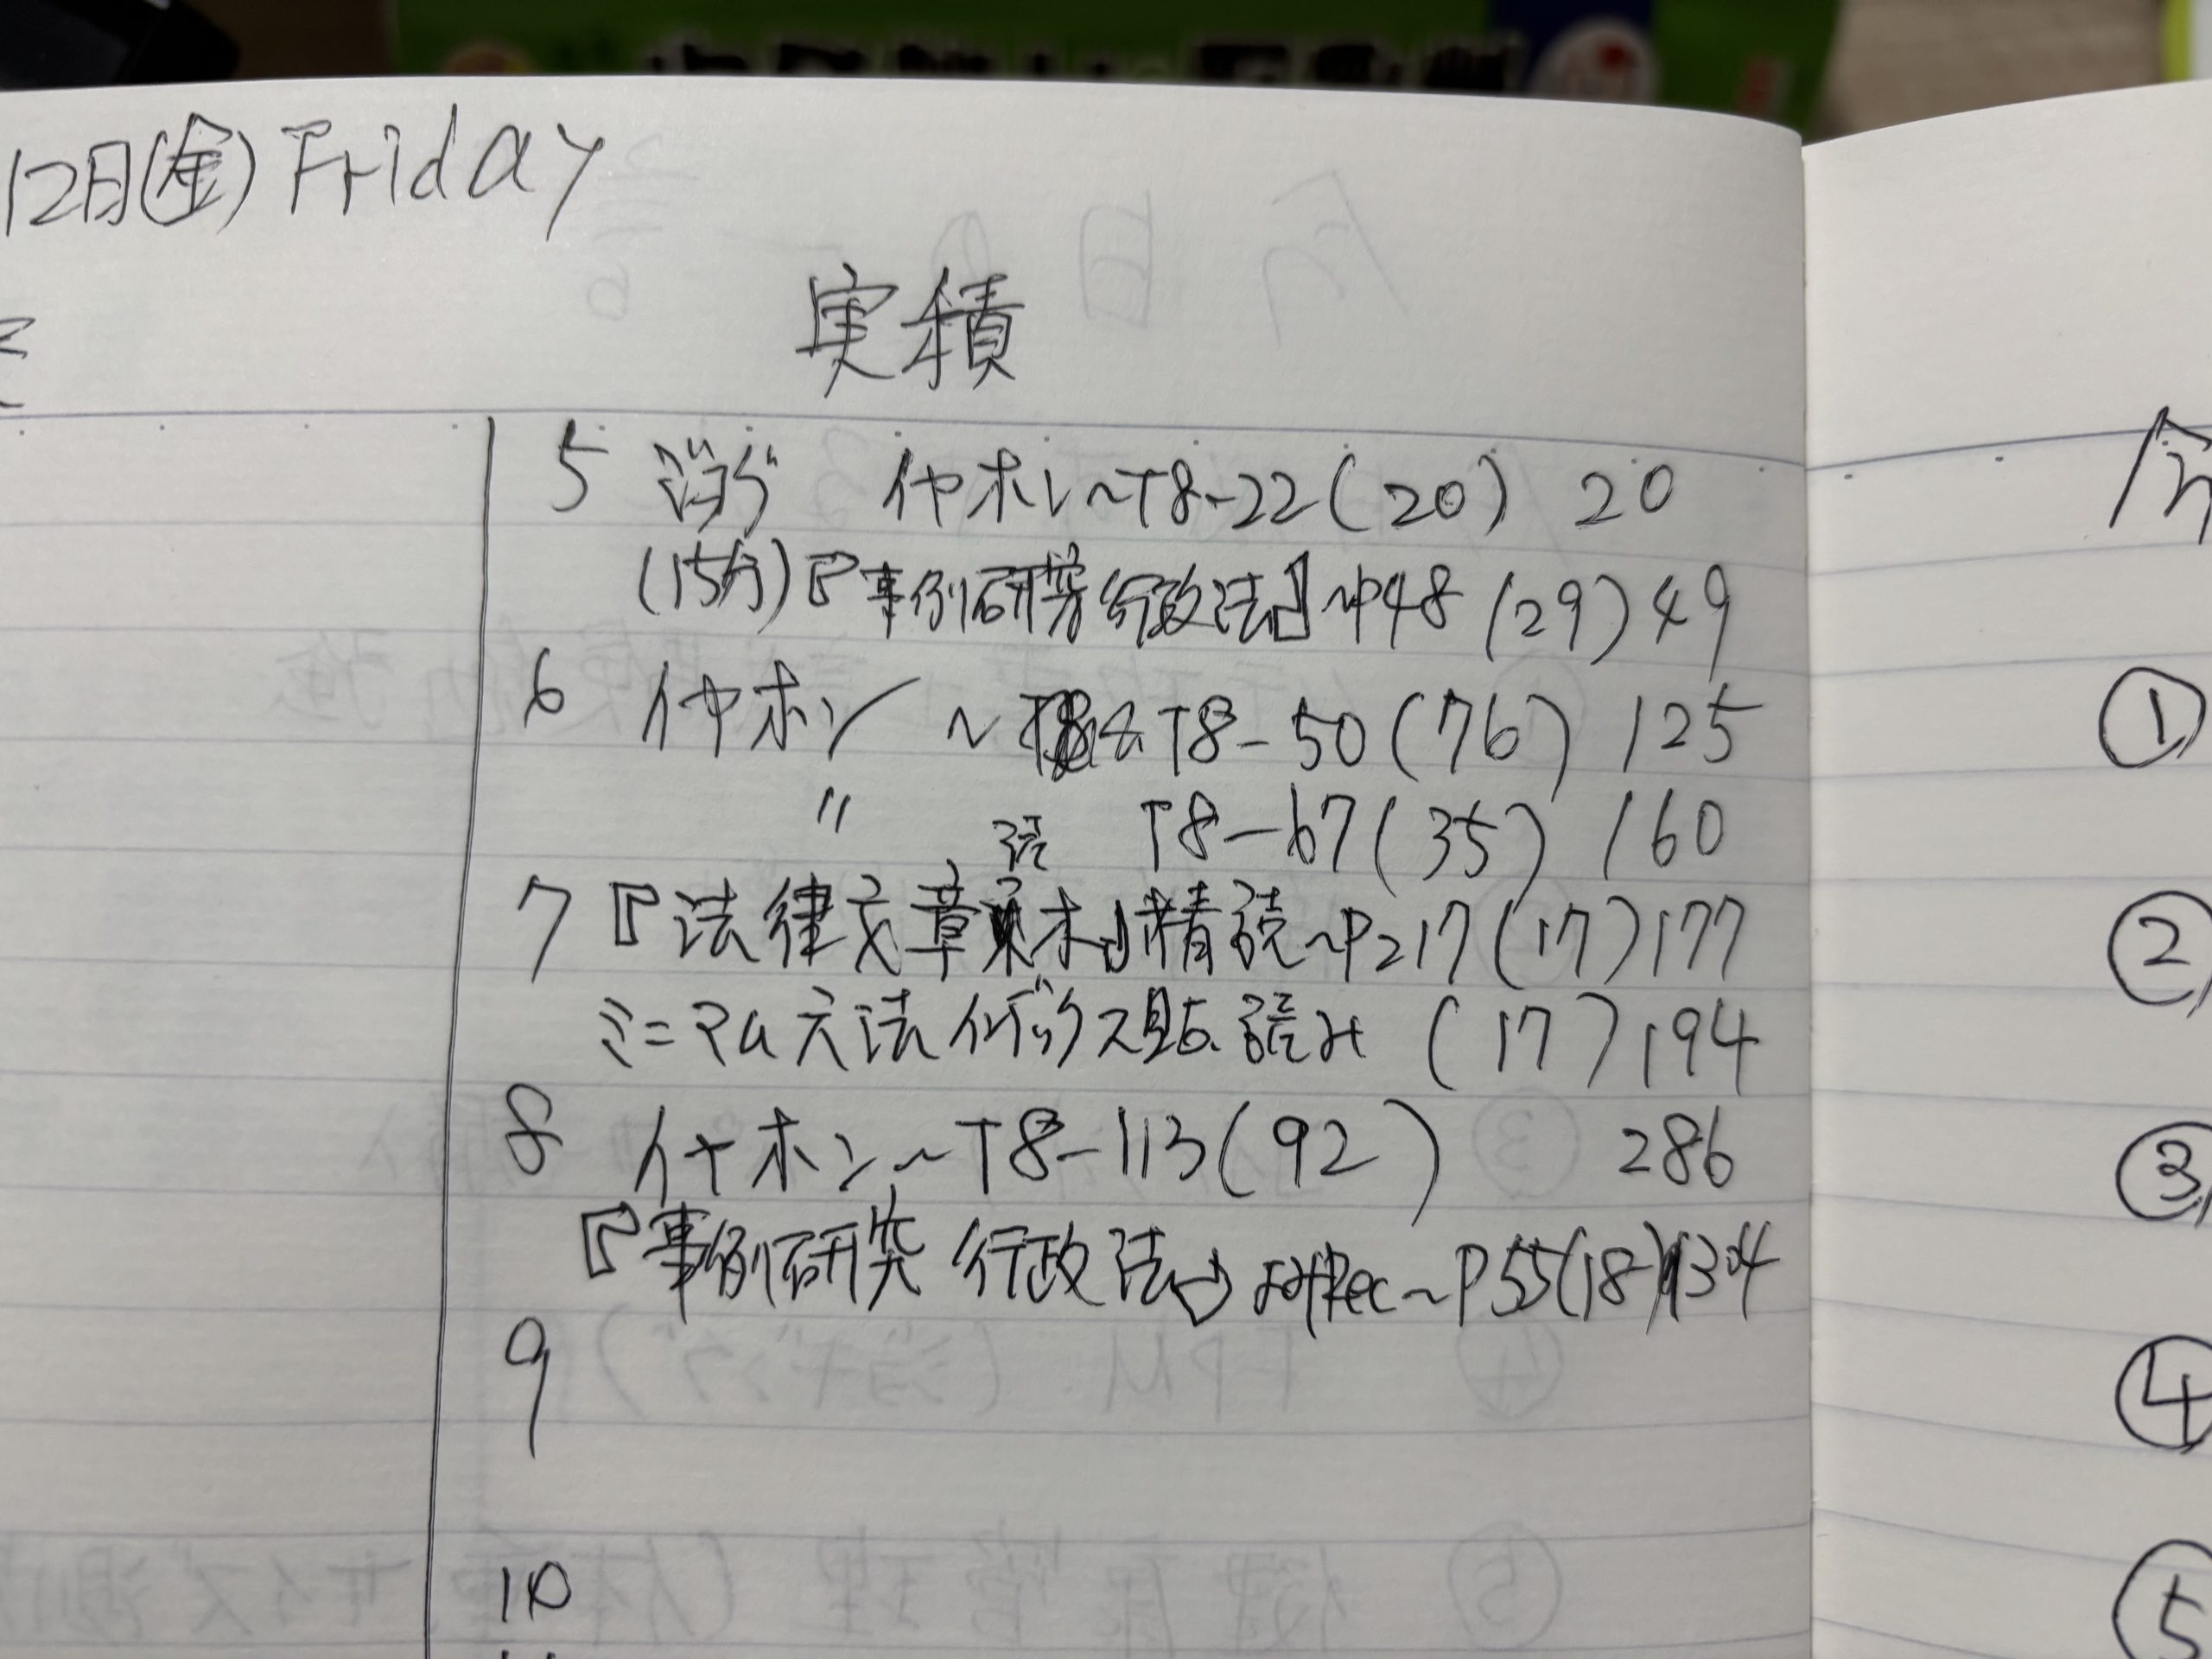 12月(金) Friday
実積
5 ジョグ イヤホン~T8-22(20) 20
(15分)『事例研究行政法』~P48 (29) 49
6 イヤホン ~ T8-50(76) 125
〃 T8-67(35) 160
7『法律文章読本』精読~P217(17)177
ミニマム六法インデックス貼、読み (17)194
8 イヤホン~T8-113(92) 286
『事例研究 行政法』 Rec~P55(18)304
9
10
①
②
③
④
⑤